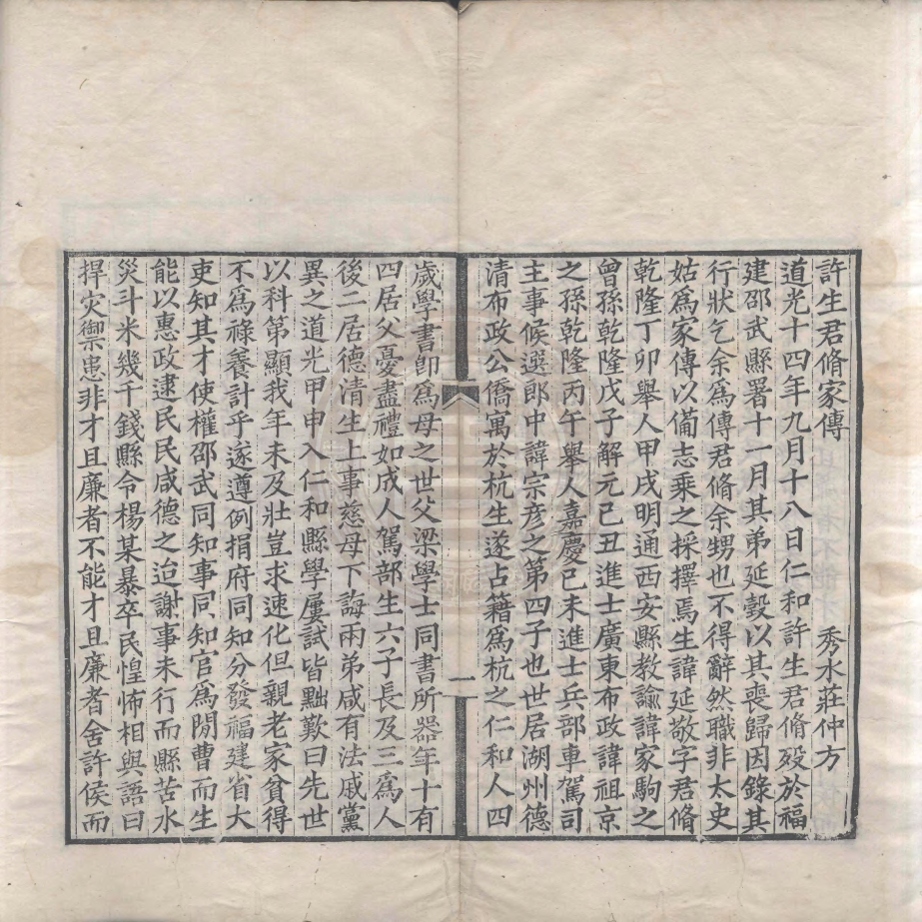 許生君脩家傳
秀水莊仲方
道光十四年九月十八日仁和許生君脩歿於福
建邵武縣署十一月其弟延糓以其喪歸因錄其
行狀乞余爲傳君脩余甥也不得辭然職非太史
姑爲家傳以備志乘之採擇焉生諱延敬字君脩
乾隆丁卯舉人甲戌明通西安縣教諭諱家駒之
曾孫乾隆戊子解元己丑進士廣東布政諱祖京
之孫乾隆丙午舉人嘉慶己未進士兵部車駕司
主事候選郎中諱宗彦之第四子也世居湖州德
清布政公僑寓於杭生遂占籍爲杭之仁和人四
一
歲學書卽爲母之世父梁學士同書所器年十有
四居父憂盡禮如成人駕部生六子長及三爲人
後二居德清生上事慈母下誨兩弟咸有法戚黨
異之道光甲申入仁和縣學屢試皆黜歎曰先世
以科第顯我年未及壯豈求速化但親老家貧得
不爲祿養計乎遂遵例捐府同知分發福建省大
吏知其才使權邵武同知事同知官爲閒曹而生
能以惠政逮民民咸德之迨謝事未行而縣苦水
災斗米幾千錢縣令楊某暴卒民惶怖相與語曰
捍灾禦患非才且廉者不能才且廉者舍許侯而